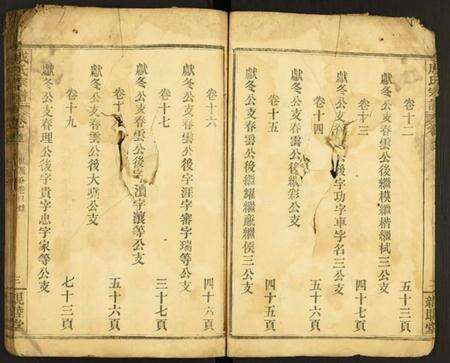 卷十二
獻冬公支春雲公後繼模繼楷繼栻三公支
五十三頁
卷十三
獻冬公支春雲公後字功字車字名三公支
卷十四
獻冬公支春雲公後繼彩公支
五十六頁
卷十五
獻冬公支春雲公後繼耀繼繼侯三公支
四十五頁
卷十六
獻冬公支春雲公後字涯字審字瑞等公支
四十六頁
卷十七
獻冬公支春雲公後字字瀆字瀼等公支
三十七頁
卷十
獻冬公支春雲公後大公支
五十六頁
卷十九
獻冬公支春理公後字貴字忠字家等公支
七十三頁
三
親睦堂